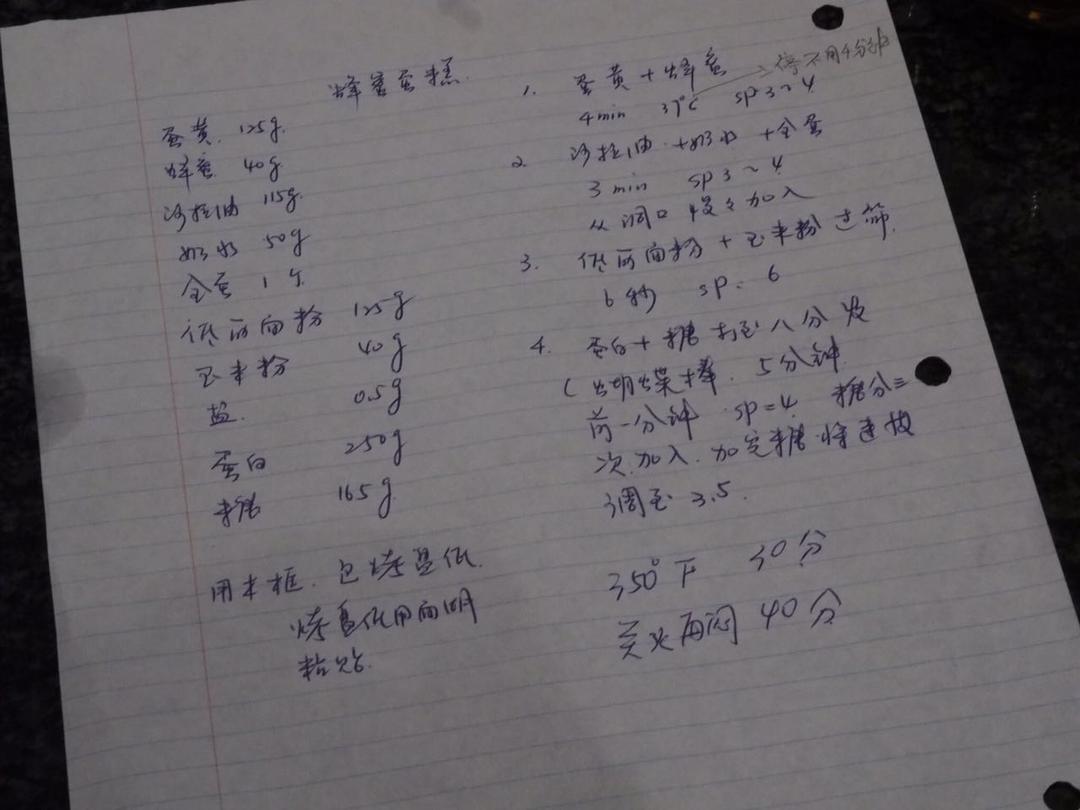 蜂蜜蛋糕
蛋黄 125g
蜂蜜 40g
沙拉油 115g
奶水 50g
全蛋 1个
低筋面粉 125g
玉米粉 40g
盐 0.5g
蛋白 250g
糖 165g
用木框.包烤盘纸.
烤盘纸用面糊
粘贴.
1. 蛋黄+蜂蜜
4min 37°C sp 3~4
→停不用4分钟
2. 沙拉油+奶水+全蛋
3min sp 3~4
从洞口慢々加入
3. 低筋面粉+玉米粉过筛.
6秒 sp. 6
4. 蛋白+糖打至八分发
(蝴蝶棒. 5分钟
前一分钟 sp=4 糖分三
次.加入.加完糖.将速度
调至 3.5.
350°F 30分
关火再闷 40分